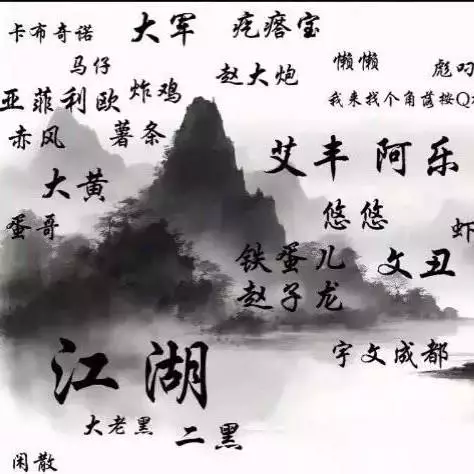 卡布奇诺
大军
疙瘩宝
马仔
赵大炮
懒懒
彪叼
亚菲利欧
炸鸡
我来找个角落按Q
赤风
薯条
艾丰
阿乐
大黄
悠悠
蛋哥
虾
铁蛋儿
文丑
赵子龙
宇文成都
江湖
大老黑
二黑
闲散